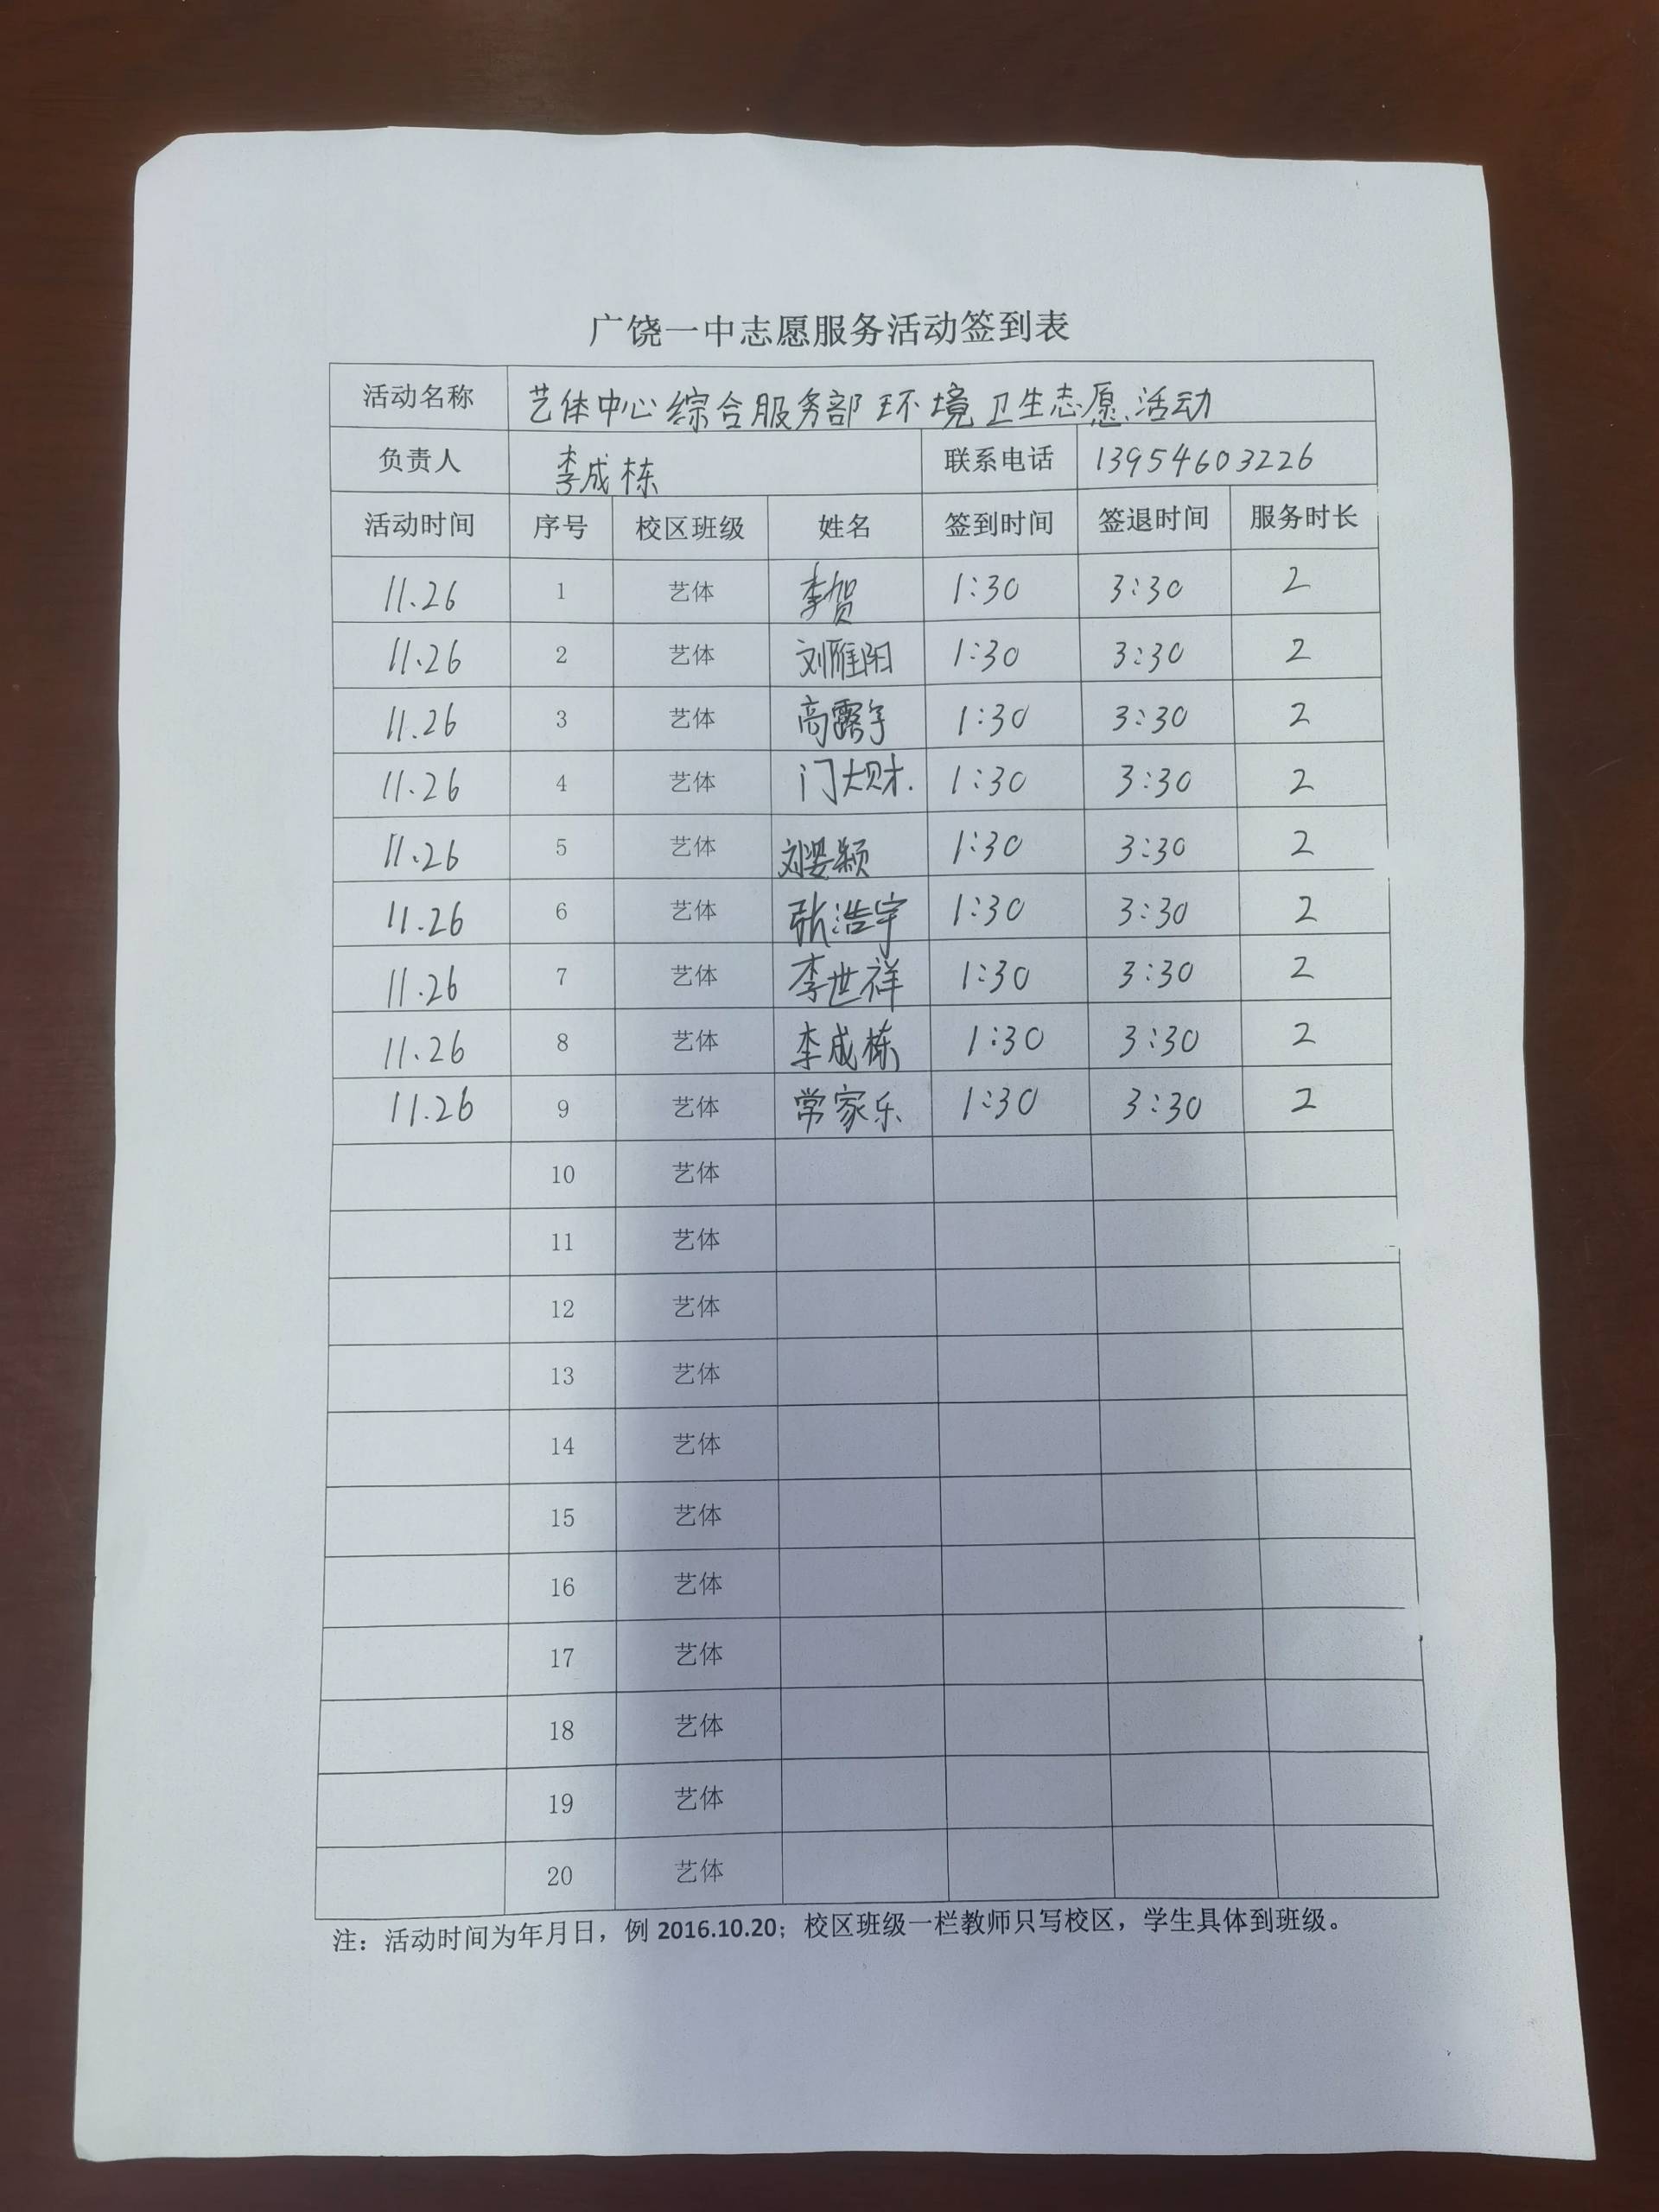 广饶一中志愿服务活动签到表
活动名称 艺体中心综合服务部环境卫生志愿活动
负责人 李成栋 联系电话 13954603226
活动时间 序号 校区班级 姓名 签到时间 签退时间 服务时长
11.26 1 艺体 李贺 1:30 3:30 2
11.26 2 艺体 刘雁阳 1:30 3:30 2
11.26 3 艺体 高露宇 1:30 3:30 2
11.26 4 艺体 门大财. 1:30 3:30 2
11.26 5 艺体 刘晏颖 1:30 3:30 2
11.26 6 艺体 张浩宇 1:30 3:30 2
11.26 7 艺体 李世祥 1:30 3:30 2
11.26 8 艺体 李成栋 1:30 3:30 2
11.26 9 艺体 常家乐 1:30 3:30 2
10 艺体
11 艺体
12 艺体
13 艺体
14 艺体
15 艺体
16 艺体
17 艺体
18 艺体
19 艺体
20 艺体
注：活动时间为年月日，例 2016.10.20；校区班级一栏教师只写校区，学生具体到班级。